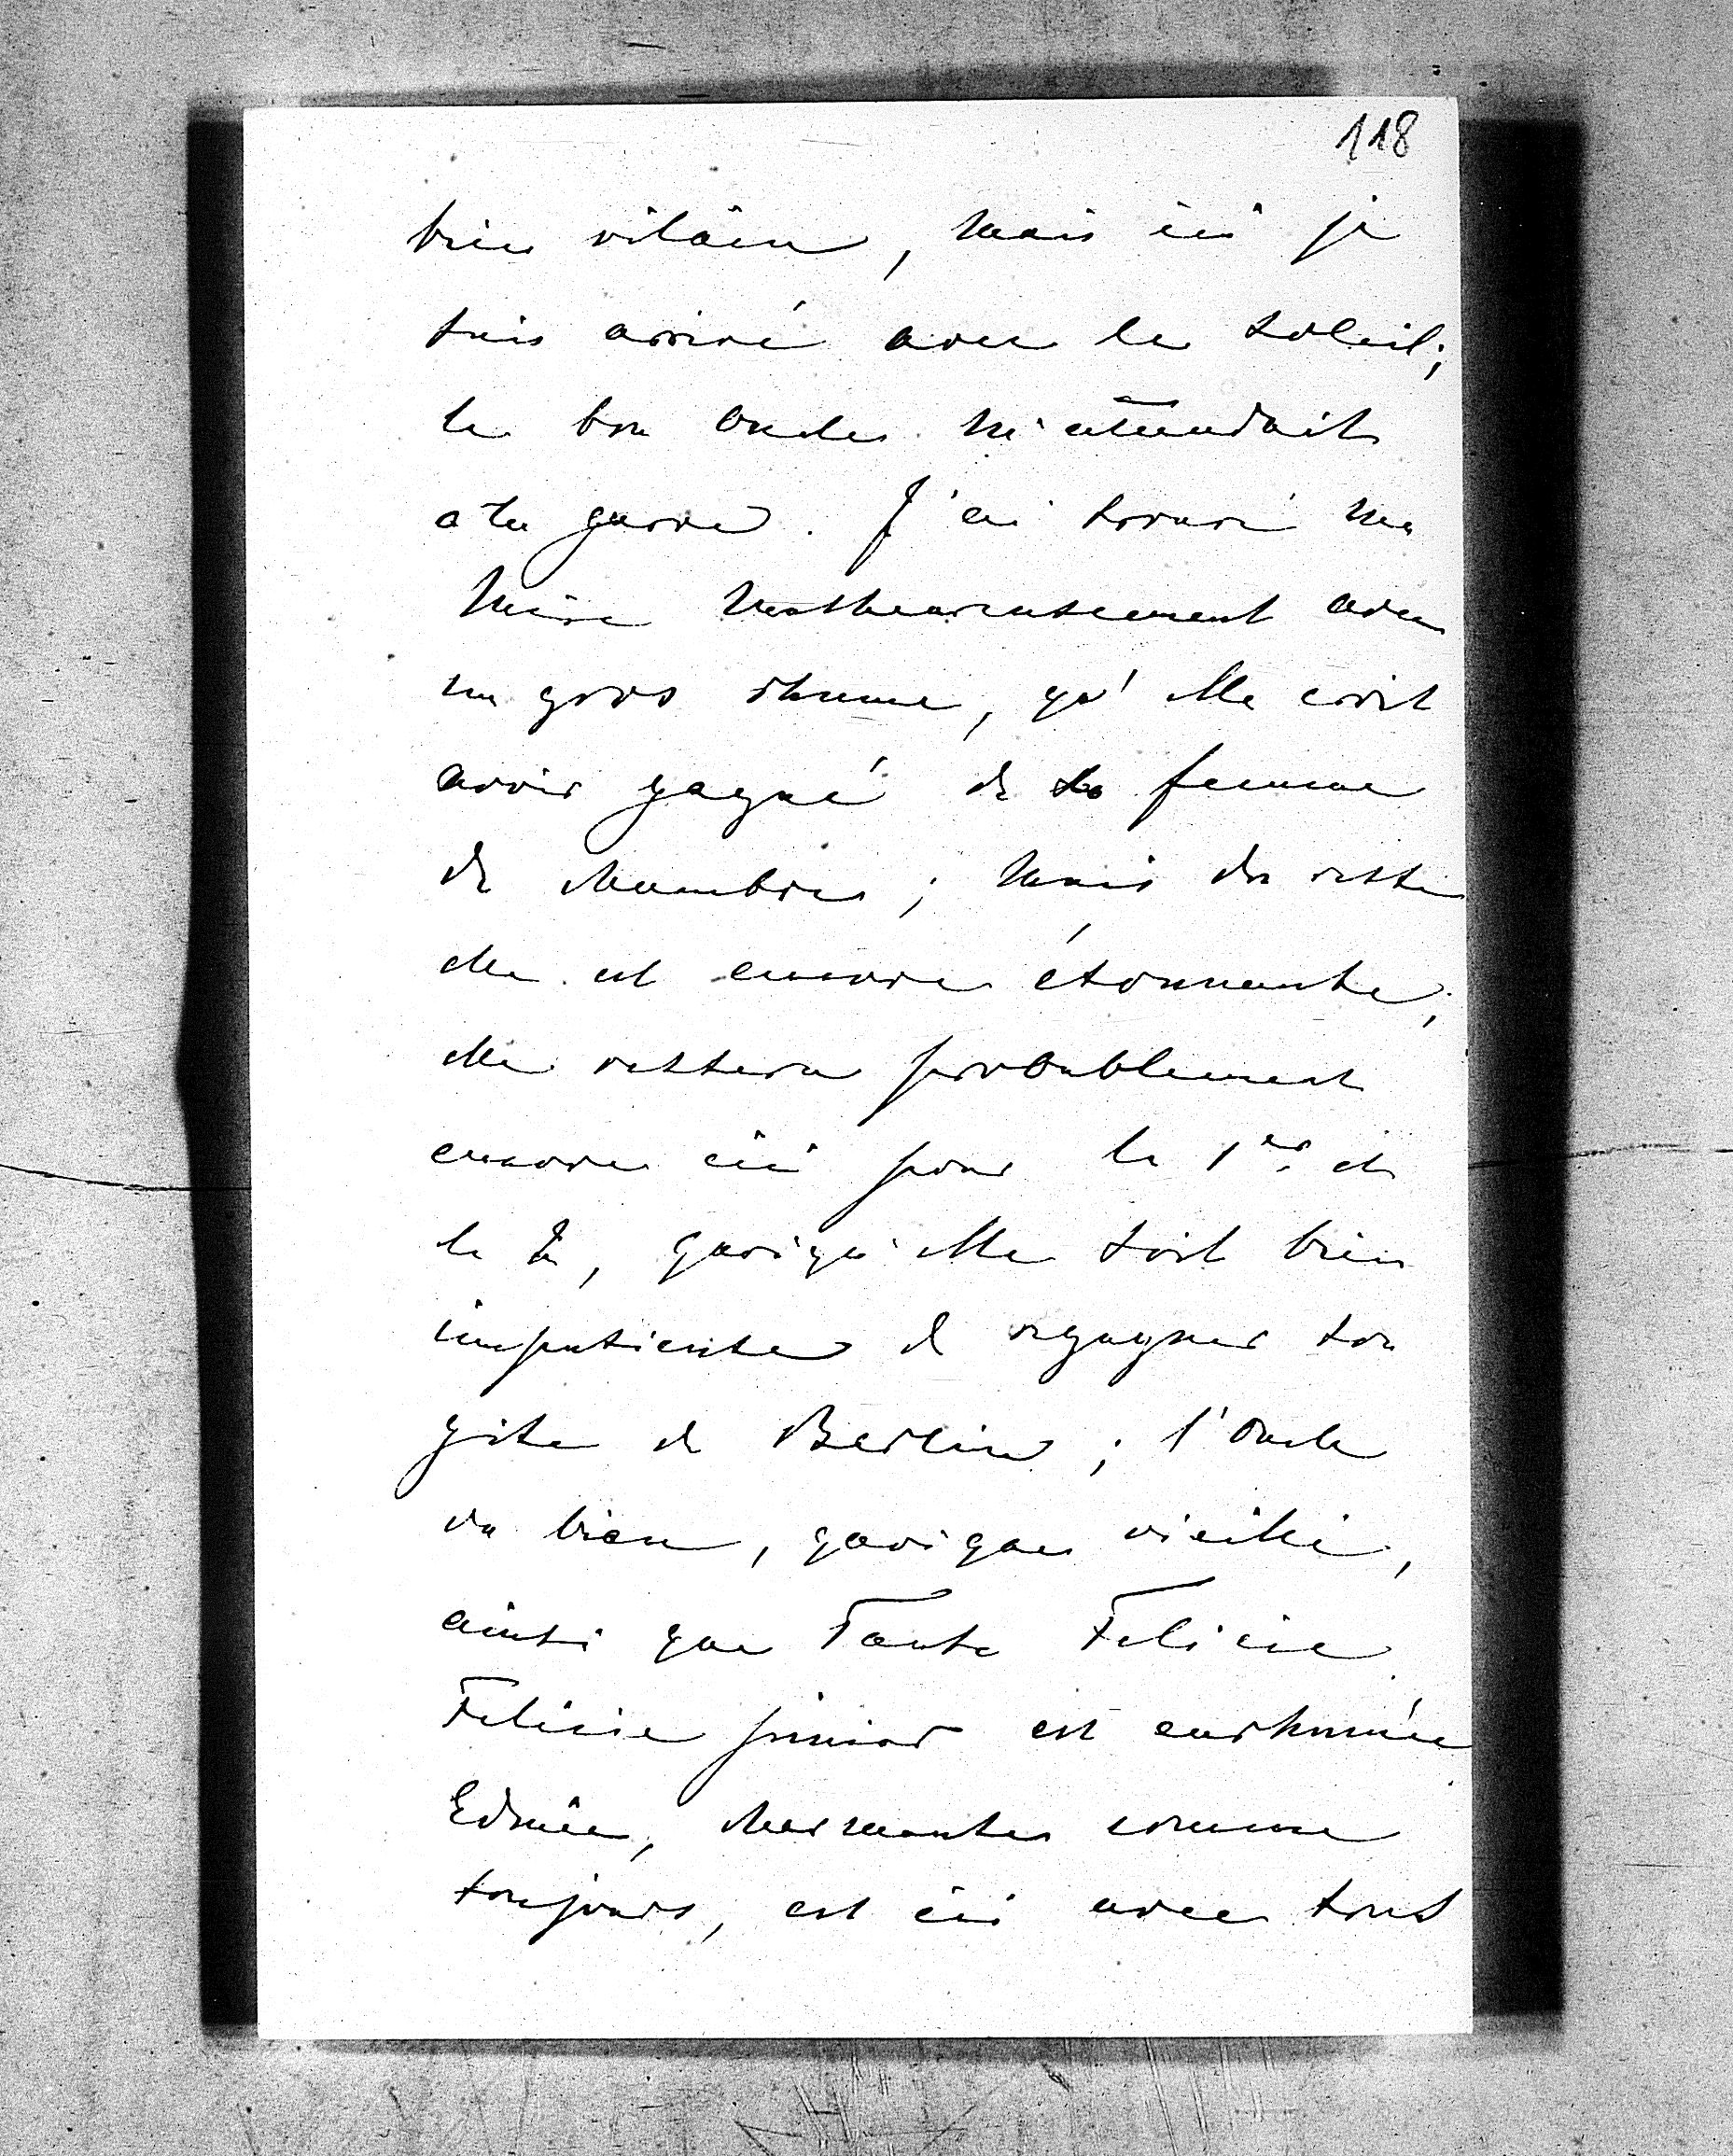 118
bien vilain, mais ici je
suis arrivé avec le soleil;
le bon Oncle m'attendait
a la garre. J'ai trouvé ma
Mère malheureusement avec
un gros rhume, qu'elle croit
avoir gagné de sa femme
de chambre; mais du reste
elle est encore étonnante;
elle restera probablement
encore ici pour le 1er et
le 2, quoiqu'elle soit bien
impatiente de regagner son
gite de Berlin; l'Oncle
va bien, quoique vieilli,
ainsi que Tante Felicie.
Felicie junior est enrhumée
Edmée, charmante comme
toujours, est ici avec tout